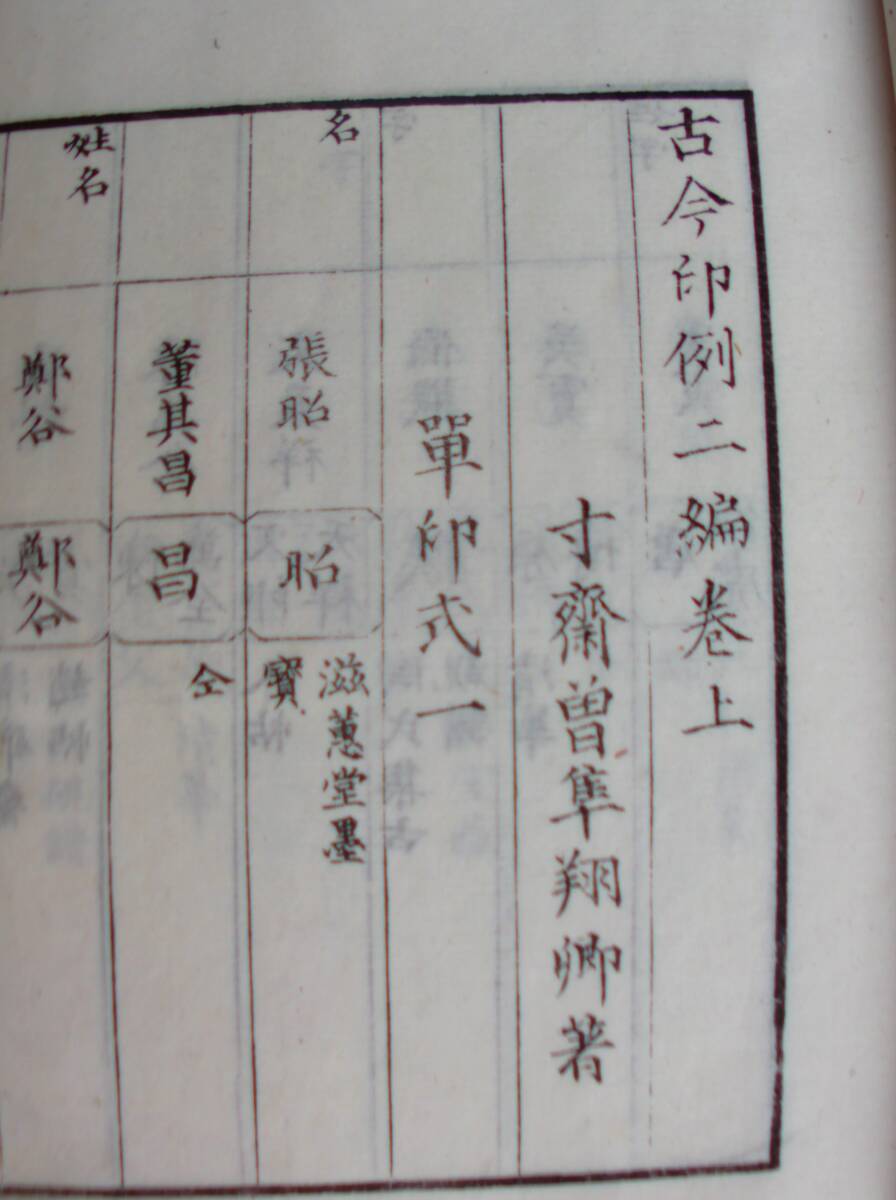 古今印例二編卷上
寸齋曽隼翔卿著
單印式一
名
張昭
昭
滋蕙堂墨
寳
董其昌
昌
仝
姓名
鄭谷
鄭谷